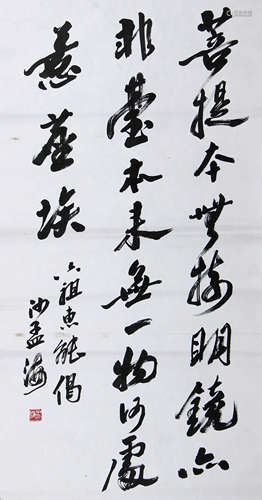 菩提本無樹明鏡亦
非臺本来無一物何處
惹塵埃
六祖惠能偈
沙孟海